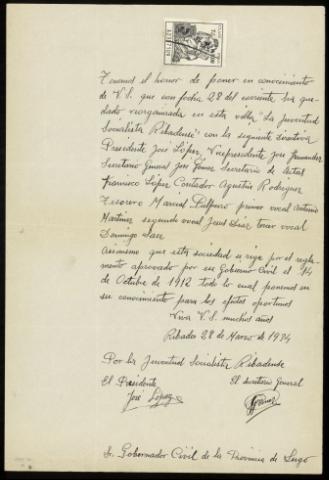 Tenemos el honor de poner en conocimiento
de V.S. que con fecha 28 del corriente ha que
dado reorganizada en esta villa "La Juventud
Socialista Ribadense" con la siguiente directiva
Presidente José López, Vicepresidente José Fernandez
Secretario General José Secretario de actas
Francisco López Contador Agustin Rodriguez
Tesorero Marcial primer vocal Antonio
Martinez segundo vocal Jesus Diaz tercer vocal
Domingo
Asimismo que esta sociedad se rige por el regla-
mento aprovado por ese Gobierno Civil el 14
de Octubre de 1912 todo lo cual ponemos en
su conocimiento para los efectos oportunos
Viva V.S. muchos años
Ribadeo 28 de Marzo de 1934
Por la Juventud Socialista Ribadense
El Presidente El secretario General
José Lopez
Sr. Gobernador Civil de la Provincia de Lugo